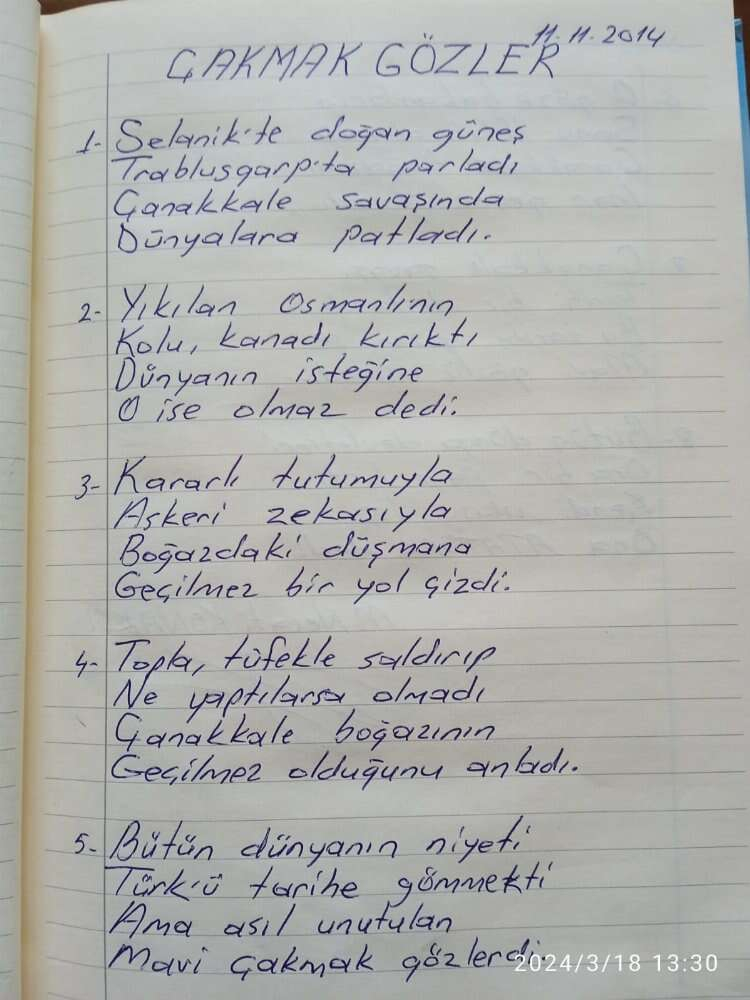 11.11.2014
ÇAKMAK GÖZLER
1- Selanik'te doğan güneş
Trablusgarp'ta parladı
Çanakkale savaşında
Dünyalara patladı.
2- Yıkılan Osmanlının
Kolu, kanadı kırıktı
Dünyanın isteğine
O ise olmaz dedi.
3- Kararlı tutumuyla
Askeri zekasıyla
Boğazdaki düşmana
Geçilmez bir yol çizdi.
4- Topla, tüfekle saldırıp
Ne yaptılarsa olmadı
Çanakkale boğazının
Geçilmez olduğunu anladı.
5- Bütün dünyanın niyeti
Türk'ü tarihe gömmekti
Ama asıl unutulan
Mavi çakmak gözlerdi.
2024/3/18 13:30